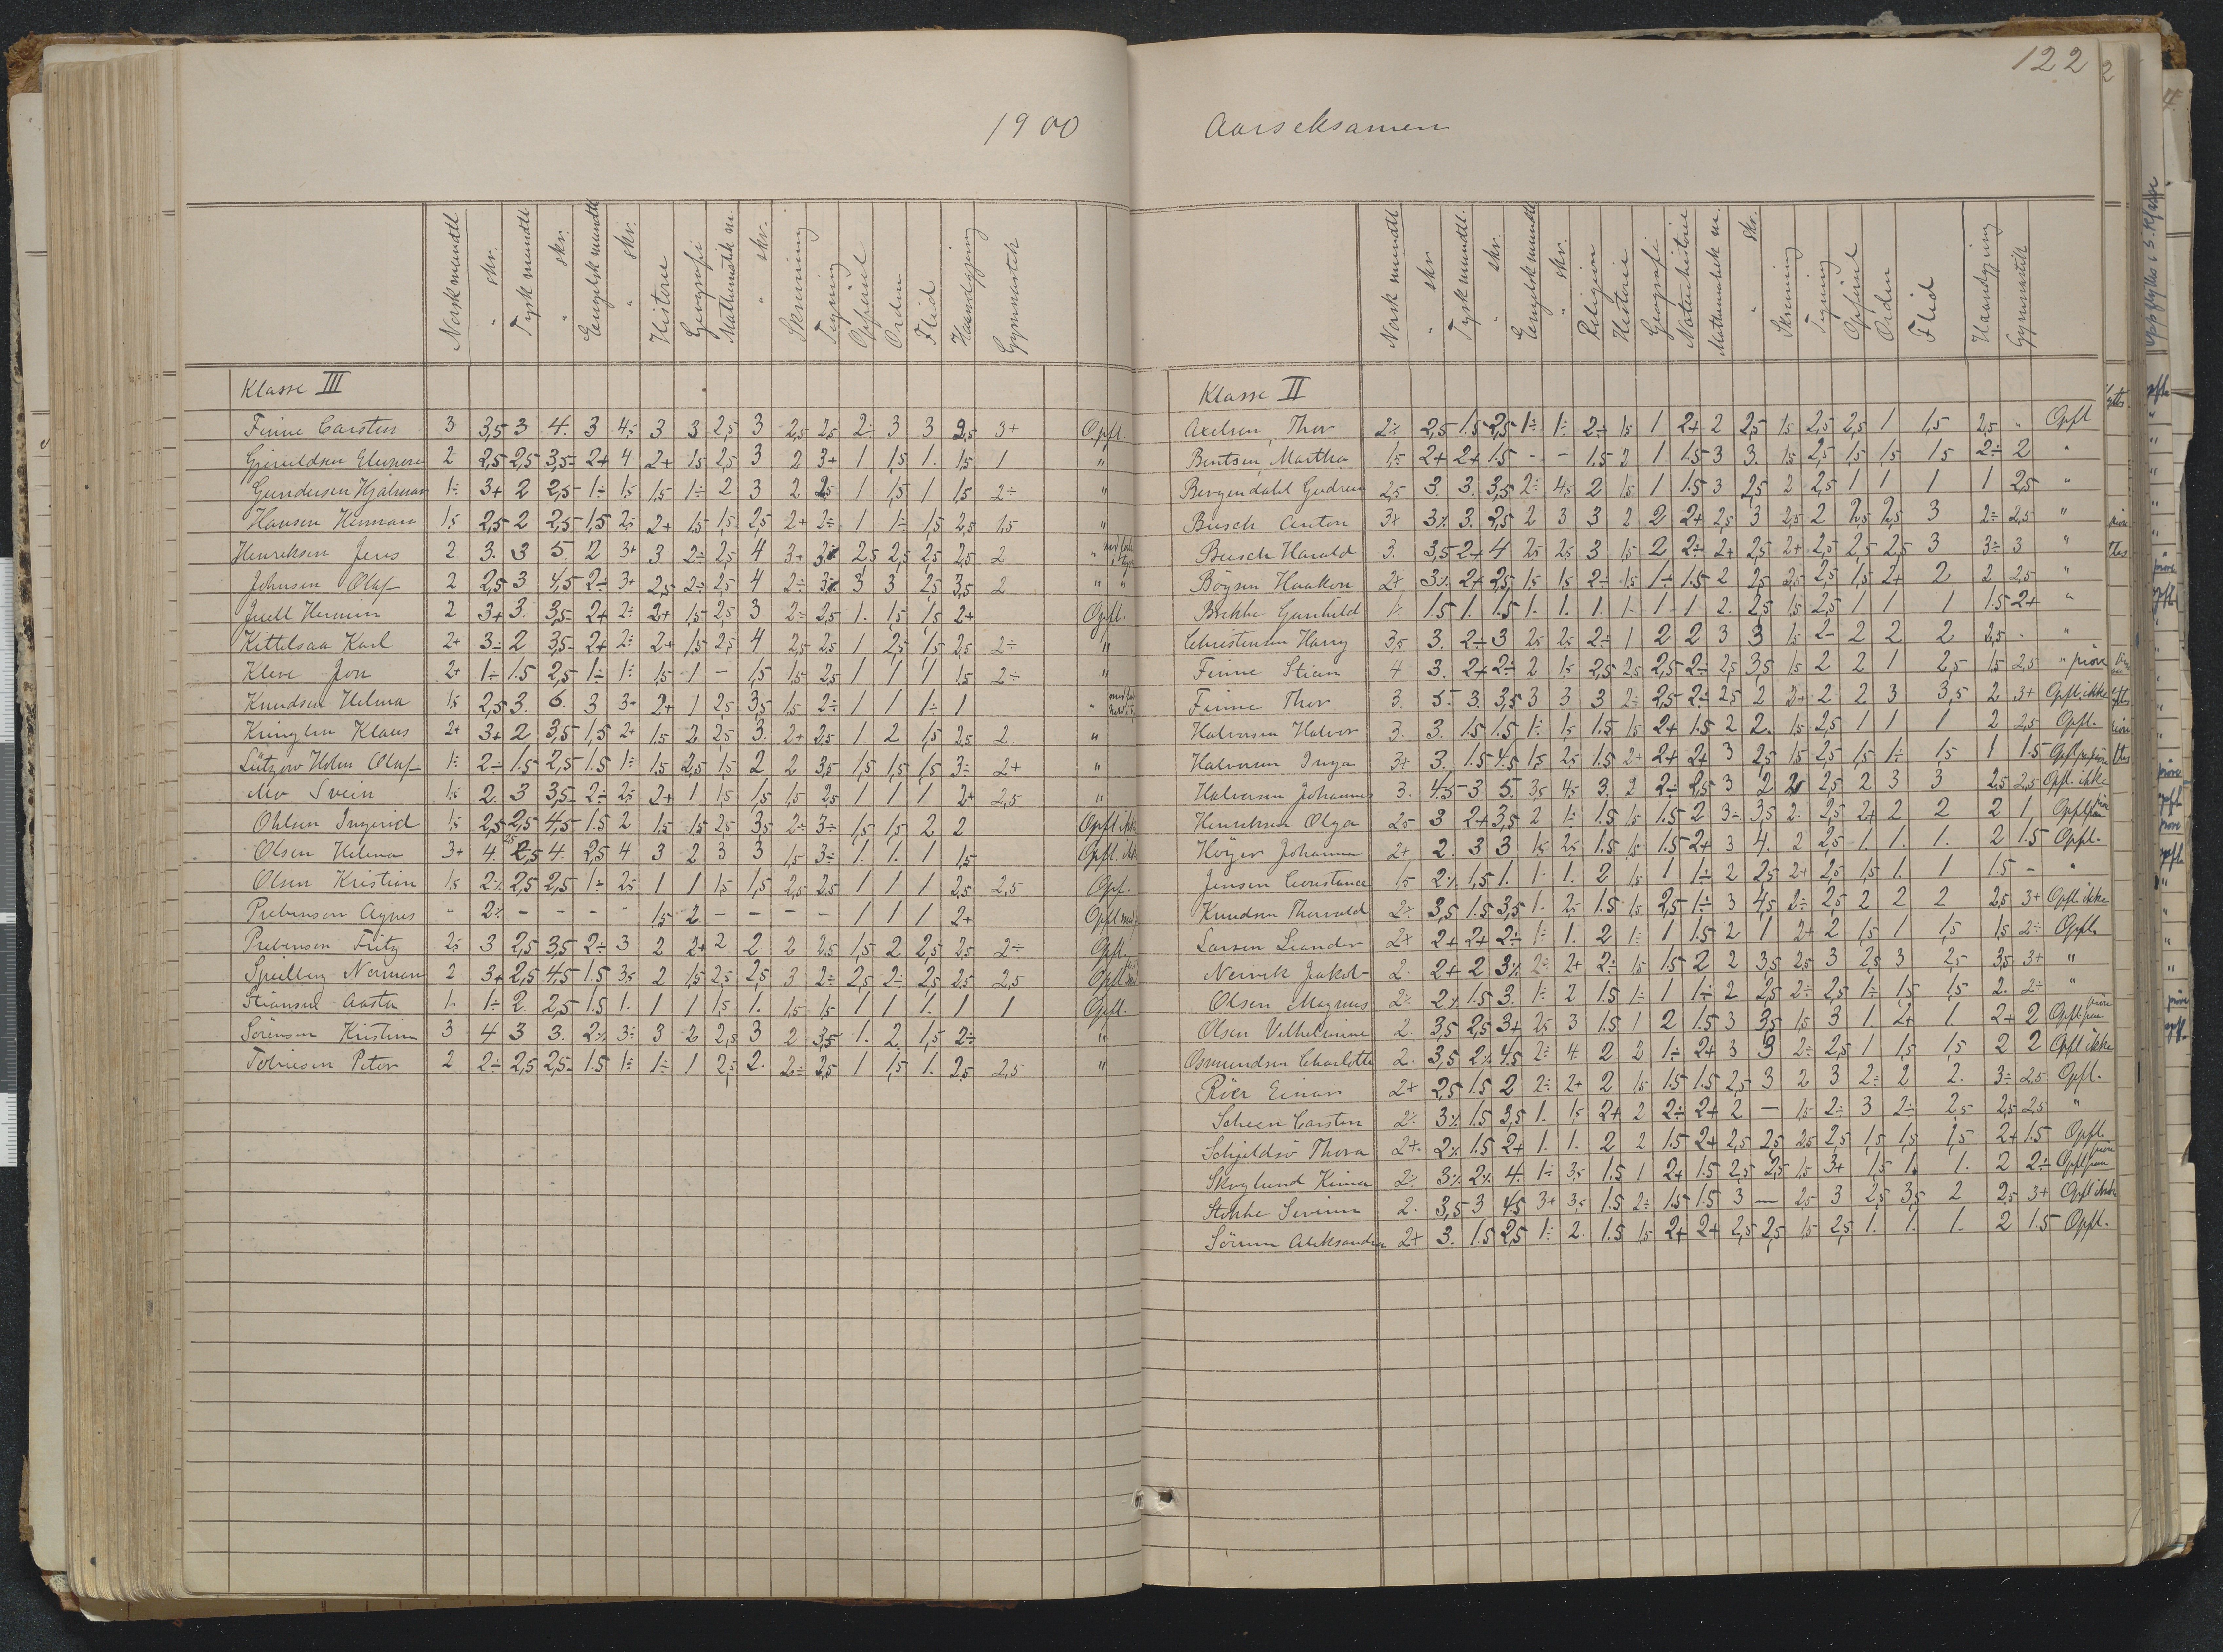 1900
Norsk mundtl. " skr. Tysk mundtl. " skr. Engelsk mundtl. " skr. Historie Geografi Mathematik m. " skr. Skrivning Tegning Opførsel Orden Flid Haandgjerning Gymnastik
Klasse III
Finne Carsten 3 3,5 3 4. 3 4÷ 3 3 2,5 3 2,5 2,5 2÷ 3 3 2,5 3+ Opfl.
Eleonore 2 2,5 2,5 3,5 2+ 4 2+ 1,5 2,5 3 2 3+ 1 1,5 1. 1,5 1 "
Gundersen Hjalmar 1÷ 3+ 2 2,5 1÷ 1,5 1,5 1÷ 2 3 2 2,5 1 1,5 1 1,5 2÷ "
Hansen Herman 1,5 2,5 2 2,5 1,5 2,5 2+ 1,5 1,5 2,5 2+ 2÷ 1 1÷ 1,5 2,5 1,5 "
Henriksen Jens 2 3. 3 5. 2 3+ 3 2÷ 2,5 4 3+ 2,5 2,5 2,5 2,5 2 "
Johnsen Olaf 2 2,5 3 4,5 2÷ 3+ 2,5 2÷ 2,5 4 2÷ 3 3 2,5 3,5 2 " "
Juell Hermin 2 3+ 3. 3,5 2+ 2÷ 2+ 1,5 2,5 3 2÷ 2,5 1. 1,5 1,5 2+ Opfl.
Kittelsaa Karl 2+ 3÷ 2 3,5 2+ 2÷ 2+ 1,5 2,5 4 2,5 2,5 1 2,5 1,5 2,5 2÷ "
Kleve Jon 2+ 1÷ 1.5 2,5 1÷ 1÷ 1,5 1 - 1,5 1,5 2,5 1 1 1 1,5 2÷ "
Knudsen Helma 1,5 2,5 3. 6. 3 3+ 2+ 1 2,5 3,5 1,5 2÷ 1 1 1÷ 1 "
Kringlen Klaus 2+ 3+ 2 3,5 1,5 2+ 1.5 2 2,5 3. 2+ 2,5 1 2 1,5 2,5 2 "
Lützow Holm Olaf 1÷ 2÷ 1.5 2,5 1.5 1÷ 1.5 2,5 1,5 2 2 3,5 1,5 1,5 1,5 3÷ 2+ "
Mo Svein 1,5 2. 3 3,5 2÷ 2,5 2+ 1 1,5 1,5 1,5 2,5 1 1 1 2+ 2,5 "
Ohlsen Ingerid 1,5 2,5 2,5 4,5 1.5 2 1.5 1,5 2,5 3,5 2÷ 3÷ 1,5 1,5 2 2 Opfl. ikke
Olsen Helma 3+ 4. 2,5 4. 2,5 4 3 2 3 3 1,5 3÷ 1. 1. 1 1,5 Opfl. ikke
Olsen Kristian 1,5 2÷ 2,5 2,5 1÷ 2,5 1 1 1,5 1,5 2,5 2,5 1 1 1 2,5 2,5 Opfl.
Prebensen Agnes - 2÷ - - - - 1,5 2 - - - - 1 1 1 2+
Prebensen Fritz 2,5 3 2,5 3,5 2÷ 3 2 2+ 2 2 2 2,5 1,5 2 2,5 2,5 2÷ Opfl.
Spielberg Norman 2 3+ 2,5 4,5 1.5 3,5 2 1,5 2,5 2,5 3 2÷ 2,5 2÷ 2,5 2,5 2,5
Aasta 1. 1÷ 2 2,5 1.5 1. 1 1 1,5 1. 1,5 1,5 1 1 1. 1 1 Opfl.
Sørensen Kristine 3 4 3 3. 2÷ 3÷ 3 2 2,5 3 2 3,5 1. 2 1,5 2÷ "
Tobiesen Peter 2 2÷ 2,5 2,5 1.5 1÷ 1÷ 1 2,5 2. 2÷ 2,5 1 1,5 1. 2,5 2,5 "
122
Aarseksamen
Norsk mundtl. " skr. Tysk mundtl. " skr. Engelsk mundtl. " skr. Religion Historie Geografi Naturhistorie Mathematik m. " skr. Skrivning Tegning Opførsel Orden Flid Haandgjerning Gymnastik
Klasse II
Axelsen, Thor 2÷ 2,5 1.5 2,5 1÷ 1÷ 2÷ 1,5 1 2+ 2 2,5 1,5 2,5 2,5 1 1,5 2,5 " Opfl
Bentsen, Martha 1,5 2+ 2+ 1.5 - - 1.5 2 1 1.5 3 3. 1,5 2,5 1,5 1,5 1.5 2÷ 2 "
Bergendahl Gudrun 2,5 3. 3. 3,5 2÷ 4,5 2 1,5 1 1.5 3 2,5 2 2,5 1 1 1 1 2,5 "
Busch Anton 3+ 3÷ 3. 2,5 2 3 3 2 2 2+ 2,5 3 2,5 2 2,5 2,5 3 2÷ 2,5 "
Busch Harald 3. 3,5 2+ 4 2,5 2,5 3 1,5 2 2÷ 2+ 2,5 2+ 2,5 2,5 2,5 3 3÷ 3 "
Böysen Haakon 2+ 3÷ 2+ 2,5 1,5 1,5 2÷ 1,5 1÷ 1.5 2 2,5 2,5 2,5 1,5 2+ 2 2 2,5 "
Brekke Gunhild 1÷ 1.5 1. 1.5 1. 1. 1. 1. 1 1 2. 2,5 1,5 2,5 1 1 1 1.5 2+ "
Christensen Harry 3,5 3. 2÷ 3 2,5 2,5 2÷ 1 2 2 3 3 1,5 2- 2 2 2 2,5 - "
Finne Stian 4 3. 2+ 2÷ 2 1,5 2,5 2,5 2,5 2÷ 2,5 3,5 1,5 2 2 1 2,5 1,5 2,5 " prøve
Finne Thor 3. 5. 3. 3,5 3 3 3 2÷ 2,5 2÷ 2,5 2 2+ 2 2 3 3,5 2 3+ Opfl. ikke
Halvorsen Halvor 3. 3. 1.5 1.5 1÷ 1,5 1.5 1,5 2+ 1.5 2 2. 1,5 2,5 1 1 1 2 2,5 Opfl.
Halvorsen Inga 3+ 3. 1.5 4.5 1,5 2,5 1.5 2+ 2+ 2+ 3 2,5 1,5 2,5 1,5 1÷ 1,5 1 1.5
Halvorsen Johannes 3. 4,5 3 5. 3,5 4,5 3. 2 2÷ 2,5 3 2 2,5 2,5 2 3 3 2,5 2,5 Opfl. ikke
Henriksen Olga 2,5 3 2+ 3,5 2 1÷ 1.5 1,5 1.5 2 3÷ 3,5 2. 2,5 2+ 2 2 2 1
Höyer Johanna 2+ 2. 3 3 1,5 2,5 1.5 1,5 1.5 2+ 3 4. 2 2,5 1. 1. 1. 2 1.5 Opfl.
Jensen Constance 1,5 2÷ 1,5 1. 1. 1. 2 1,5 1 1÷ 2 2,5 2+ 2,5 1,5 1. 1 1.5 - "
Knudsen Thorvald 2÷ 3,5 1.5 3,5 1. 2,5 1.5 1,5 2,5 1÷ 3 4,5 2÷ 2,5 2 2 2 2,5 3+ Opfl. ikke
Larsen Leander 2+ 2+ 2+ 2÷ 1÷ 1. 2 1÷ 1 1.5 2 1 2+ 2 1,5 1 1,5 1,5 2÷ Opfl.
Nervik Jakob 2. 2+ 2 3÷ 2÷ 2+ 2÷ 1,5 1.5 2 2 3,5 2,5 3 2,5 3 2,5 3,5 3+ "
Olsen Magnus 2÷ 2÷ 1.5 3. 1÷ 2 1.5 1÷ 1 1÷ 2 2,5 2÷ 2,5 1÷ 1,5 1,5 2. 2÷ "
Olsen Vilhelmine 2. 3,5 2,5 3+ 2,5 3 1.5 1 2 1.5 3 3,5 1,5 3 1. 2+ 1. 2+ 2
Osmundsen Charlotte 2. 3,5 2÷ 4,5 2÷ 4. 2 2 1÷ 2+ 3 3 2÷ 2,5 1 1,5 1,5 2 2 Opfl. ikke
Röer Einar 2+ 2,5 1.5 2 2÷ 2+ 2 1,5 1.5 1.5 2,5 3 2 3 2÷ 2 2. 3÷ 2,5 Opfl.
Scheen Carsten 2÷ 3÷ 1.5 3,5 1. 1,5 2+ 2 2÷ 2+ 2 - 1,5 2÷ 3 2÷ 2,5 2,5 2,5 "
Schjeldsö Thora 2+ 2÷ 1.5 2+ 1. 1. 2 2 1.5 2+ 2,5 2,5 2,5 2,5 1,5 1,5 1,5 2+ 1.5 Opfl.
Skoglund Kima 2÷ 3÷ 2÷ 4. 1÷ 3,5 1.5 1 2+ 1.5 2,5 2,5 1,5 3+ 1,5 1. 1. 2 2÷
Stokke Severin 2. 3,5 3 4,5 3+ 3,5 1.5 2÷ 1.5 1.5 3 - 2,5 3 2,5 3,5 2 2,5 3+ Opfl. ikke
Sörum Aleksandra 2+ 3. 1.5 2,5 1÷ 2. 1.5 1,5 2+ 2+ 2,5 2,5 1,5 2,5 1. 1. 1. 2 1.5 Opfl.